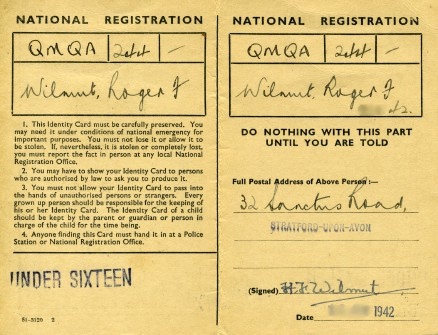 NATIONAL REGISTRATION
QMQA
Wilmut, Roger F
1. This Identity Card must be carefully preserved. You
may need it under conditions of national emergency for
important purposes. You must not lose it or allow it to
be stolen. If, nevertheless, it is stolen or completely lost,
you must report the fact in person at any local National
Registration Office.
2. You may have to show your Identity Card to persons
who are authorised by law to ask you to produce it.
3. You must not allow your Identity Card to pass into
the hands of unauthorised persons or strangers. Every
grown up person should be responsible for the keeping of
his or her Identity Card. The Identity Card of a child
should be kept by the parent or guardian or person in
charge of the child for the time being.
4. Anyone finding this Card must hand it in at a Police
Station or National Registration Office.
UNDER SIXTEEN
51-3120 2
NATIONAL REGISTRATION
QMQA
Wilmut, Roger F
DO NOTHING WITH THIS PART
UNTIL YOU ARE TOLD
Full Postal Address of Above Person:—
32 Sanctus Road,
STRATFORD-UPON-AVON
(Signed) H.F. Wilmut
Date 1942